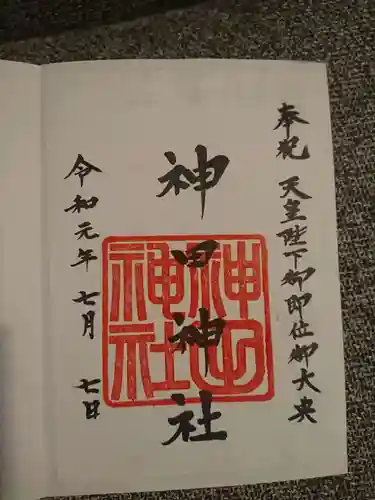 奉祝 天皇陛下御即位御大典
神田神社
神田
神社
令和元年 七月 七日